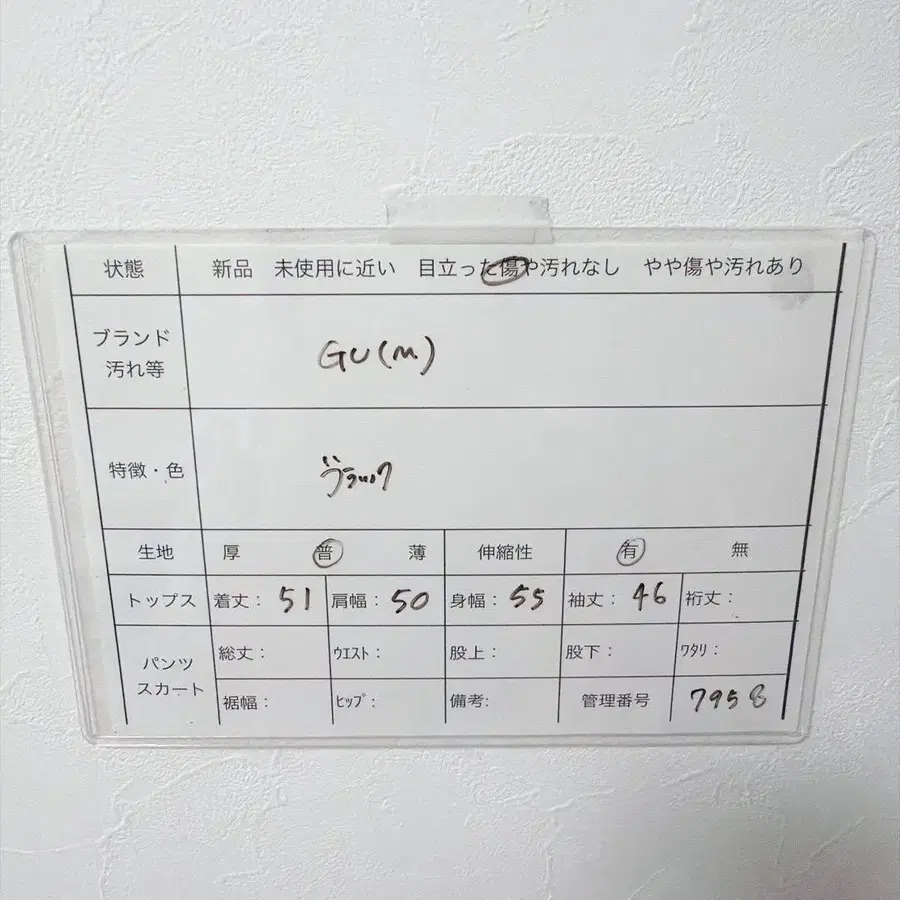 状態 新品 未使用に近い 目立った傷や汚れなし やや傷や汚れあり
ブランド
汚れ等
GU(M)
特徴・色
ブラック
生地 厚 普 薄 伸縮性 有 無
トップス 着丈: 51 肩幅: 50 身幅: 55 袖丈: 46 裄丈:
パンツ
スカート
総丈: ｳｴｽﾄ: 股上: 股下: ﾜﾀﾘ:
裾幅: ﾋｯﾌﾟ: 備考: 管理番号 7958